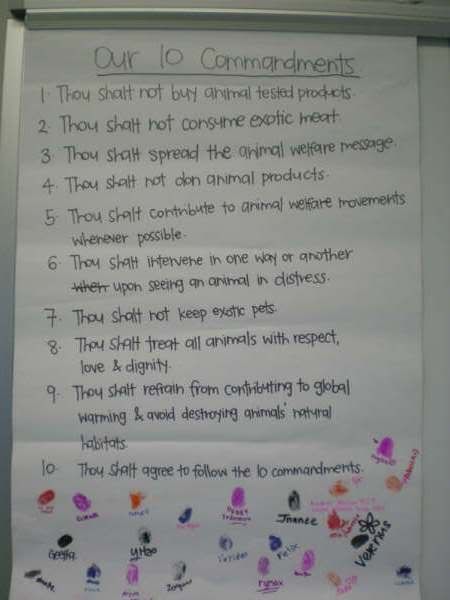 Our 10 Commandments
1. Thou shalt not buy animal tested products.
2. Thou shalt not consume exotic meat.
3. Thou shalt spread the animal welfare message.
4. Thou shalt not don animal products.
5. Thou shalt contribute to animal welfare movements
whenever possible.
6. Thou shalt intervene in one way or another
when upon seeing an animal in distress.
7. Thou shalt not keep exotic pets.
8. Thou shalt treat all animals with respect,
love & dignity.
9. Thou shalt refrain from contributing to global
warming & avoid destroying animals' natural
habitats.
10. Thou shalt agree to follow the 10 commandments.
Jnanee
Geetha
Veterins
rymax